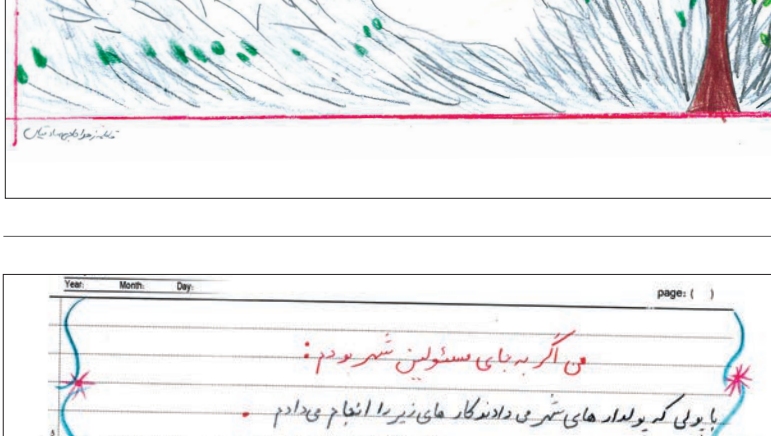 Year: Month: Day: page: ( )
من اگر به جای مسئولین شهر بودم :
با پولی که پولدار های شهر می دادند کار های زیر را انجام می دادم .